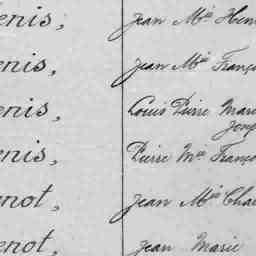 enis, Jean Mie Hen
enis, Jean Mie Franço
enis, Louis Pierre Marie
Josep
enis, Pierre Mie Franço
enot, Jean Mie Char
enot, Jean Marie